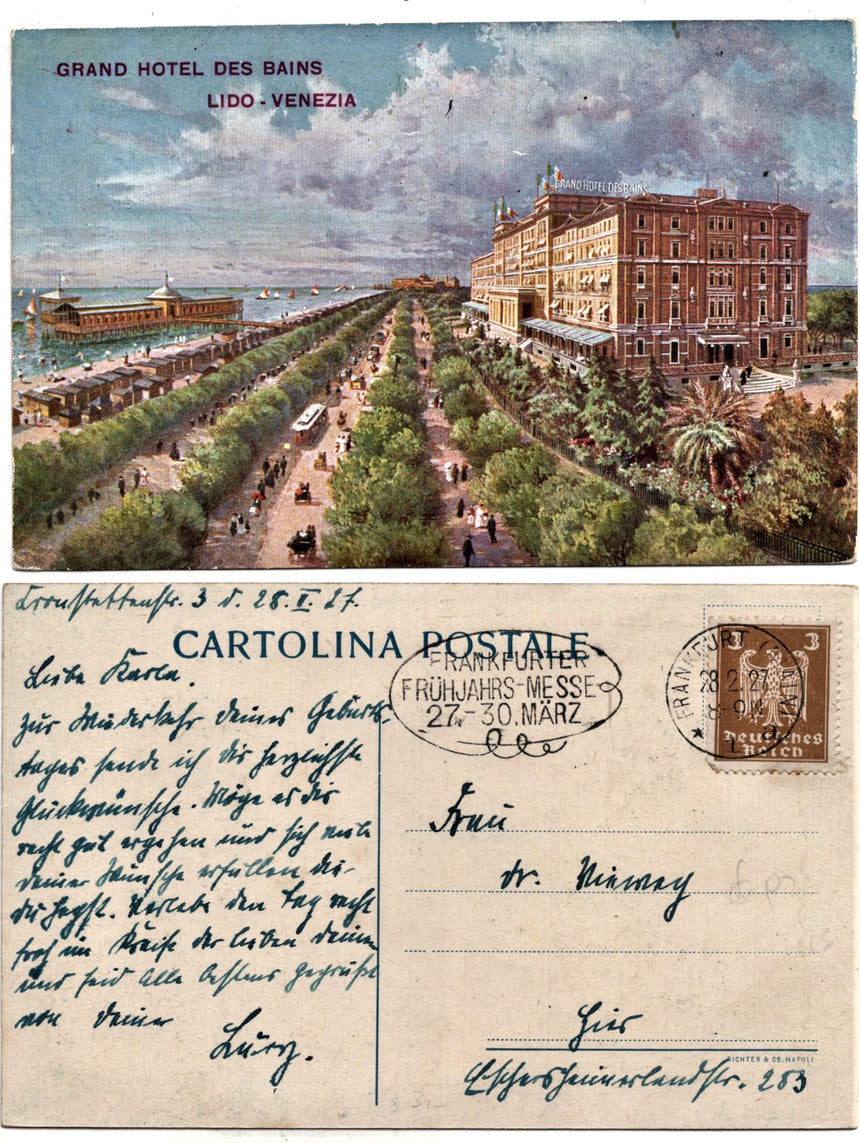 GRAND HOTEL DES BAINS
LIDO - VENEZIA
GRAND HOTEL DES BAINS
Cronstettenstr. 3 d. 28. II. 27.
CARTOLINA POSTALE
Liebe Karla.
Zur Wiederkehr deines Geburts-
tages sende ich dir herzlichste
Glückwünsche. Möge es dir
recht gut ergehen und sich viele
deiner Wünsche erfüllen die
du hegst. Verlebe den Tag recht
froh im Kreise der lieben Deinen
und seid alle bestens gegrüßt
von Deiner
FRANKFURTER
FRÜHJAHRS-MESSE
27.-30. MÄRZ
FRANKFURT (MAIN)
28.2.27
8-9 N
* 1 d
3 3
Deutsches
Reich
Frau
Dr. Vieweg
Hier
Eschersheimerlandstr. 253
RICHTER & Cº. NAPOLI